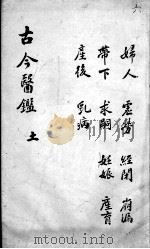 六
婦人 虛勞 經閉 崩漏
帶下 求嗣 妊娠 產育
產後 乳病
古今醫鑑 十一